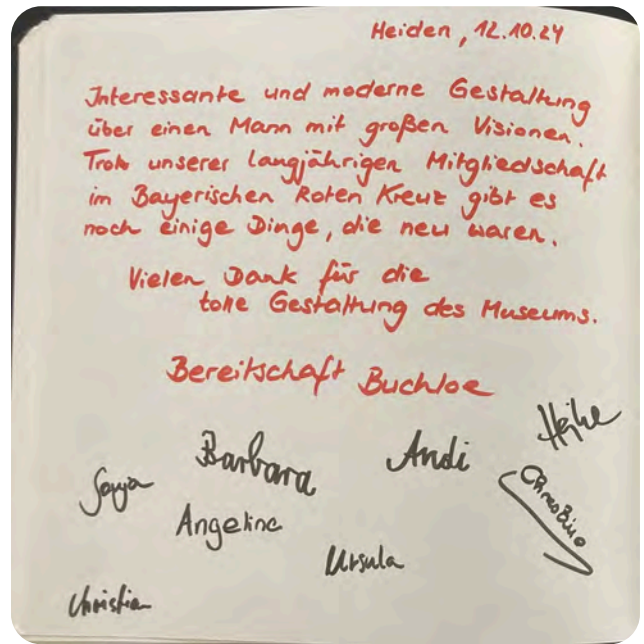 Heiden, 12.10.24
Interessante und moderne Gestaltung
über einen Mann mit großen Visionen.
Trotz unserer langjährigen Mitgliedschaft
im Bayerischen Roten Kreuz gibt es
noch einige Dinge, die neu waren.
Vielen Dank für die
tolle Gestaltung des Museums.
Bereitschaft Buchloe
Heike
Barbara
Andi
Sonja
Angelina
Ursula